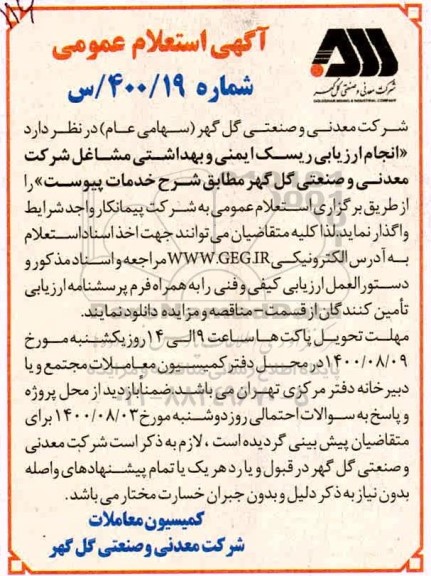 آگهی استعلام عمومی
شماره ۴۰۰/۱۹/س
شرکت معدنی و صنعتی گل گهر
GOLGOHAR MINING & INDUSTRIAL COMPANY
شرکت معدنی و صنعتی گل گهر (سهامی عام) در نظر دارد
«انجام ارزیابی ریسک ایمنی و بهداشتی مشاغل شرکت
معدنی و صنعتی گل گهر مطابق شرح خدمات پیوست» را
از طریق برگزاری استعلام عمومی به شرکت پیمانکار واجد شرایط
واگذار نماید. لذا کلیه متقاضیان می توانند جهت اخذ اسناد استعلام
به آدرس الکترونیکی WWW.GEG.IR مراجعه و اسناد مذکور و
دستورالعمل ارزیابی کیفی و فنی را به همراه فرم پرسشنامه ارزیابی
تأمین کنندگان از قسمت - مناقصه و مزایده دانلود نمایند.
مهلت تحویل پاکت ها ساعت ۹ الی ۱۴ روز یکشنبه مورخ
۱۴۰۰/۰۸/۰۹ در محل دفتر کمیسیون معاملات مجتمع و یا
دبیرخانه دفتر مرکزی تهران می باشد. ضمنا بازدید از محل پروژه
و پاسخ به سوالات احتمالی روز دوشنبه مورخ ۱۴۰۰/۰۸/۰۳ برای
متقاضیان پیش بینی گردیده است، لازم به ذکر است شرکت معدنی
و صنعتی گل گهر در قبول و یا رد هر یک یا تمام پیشنهادهای واصله
بدون نیاز به ذکر دلیل و بدون جبران خسارت مختار می باشد.
کمیسیون معاملات
شرکت معدنی و صنعتی گل گهر